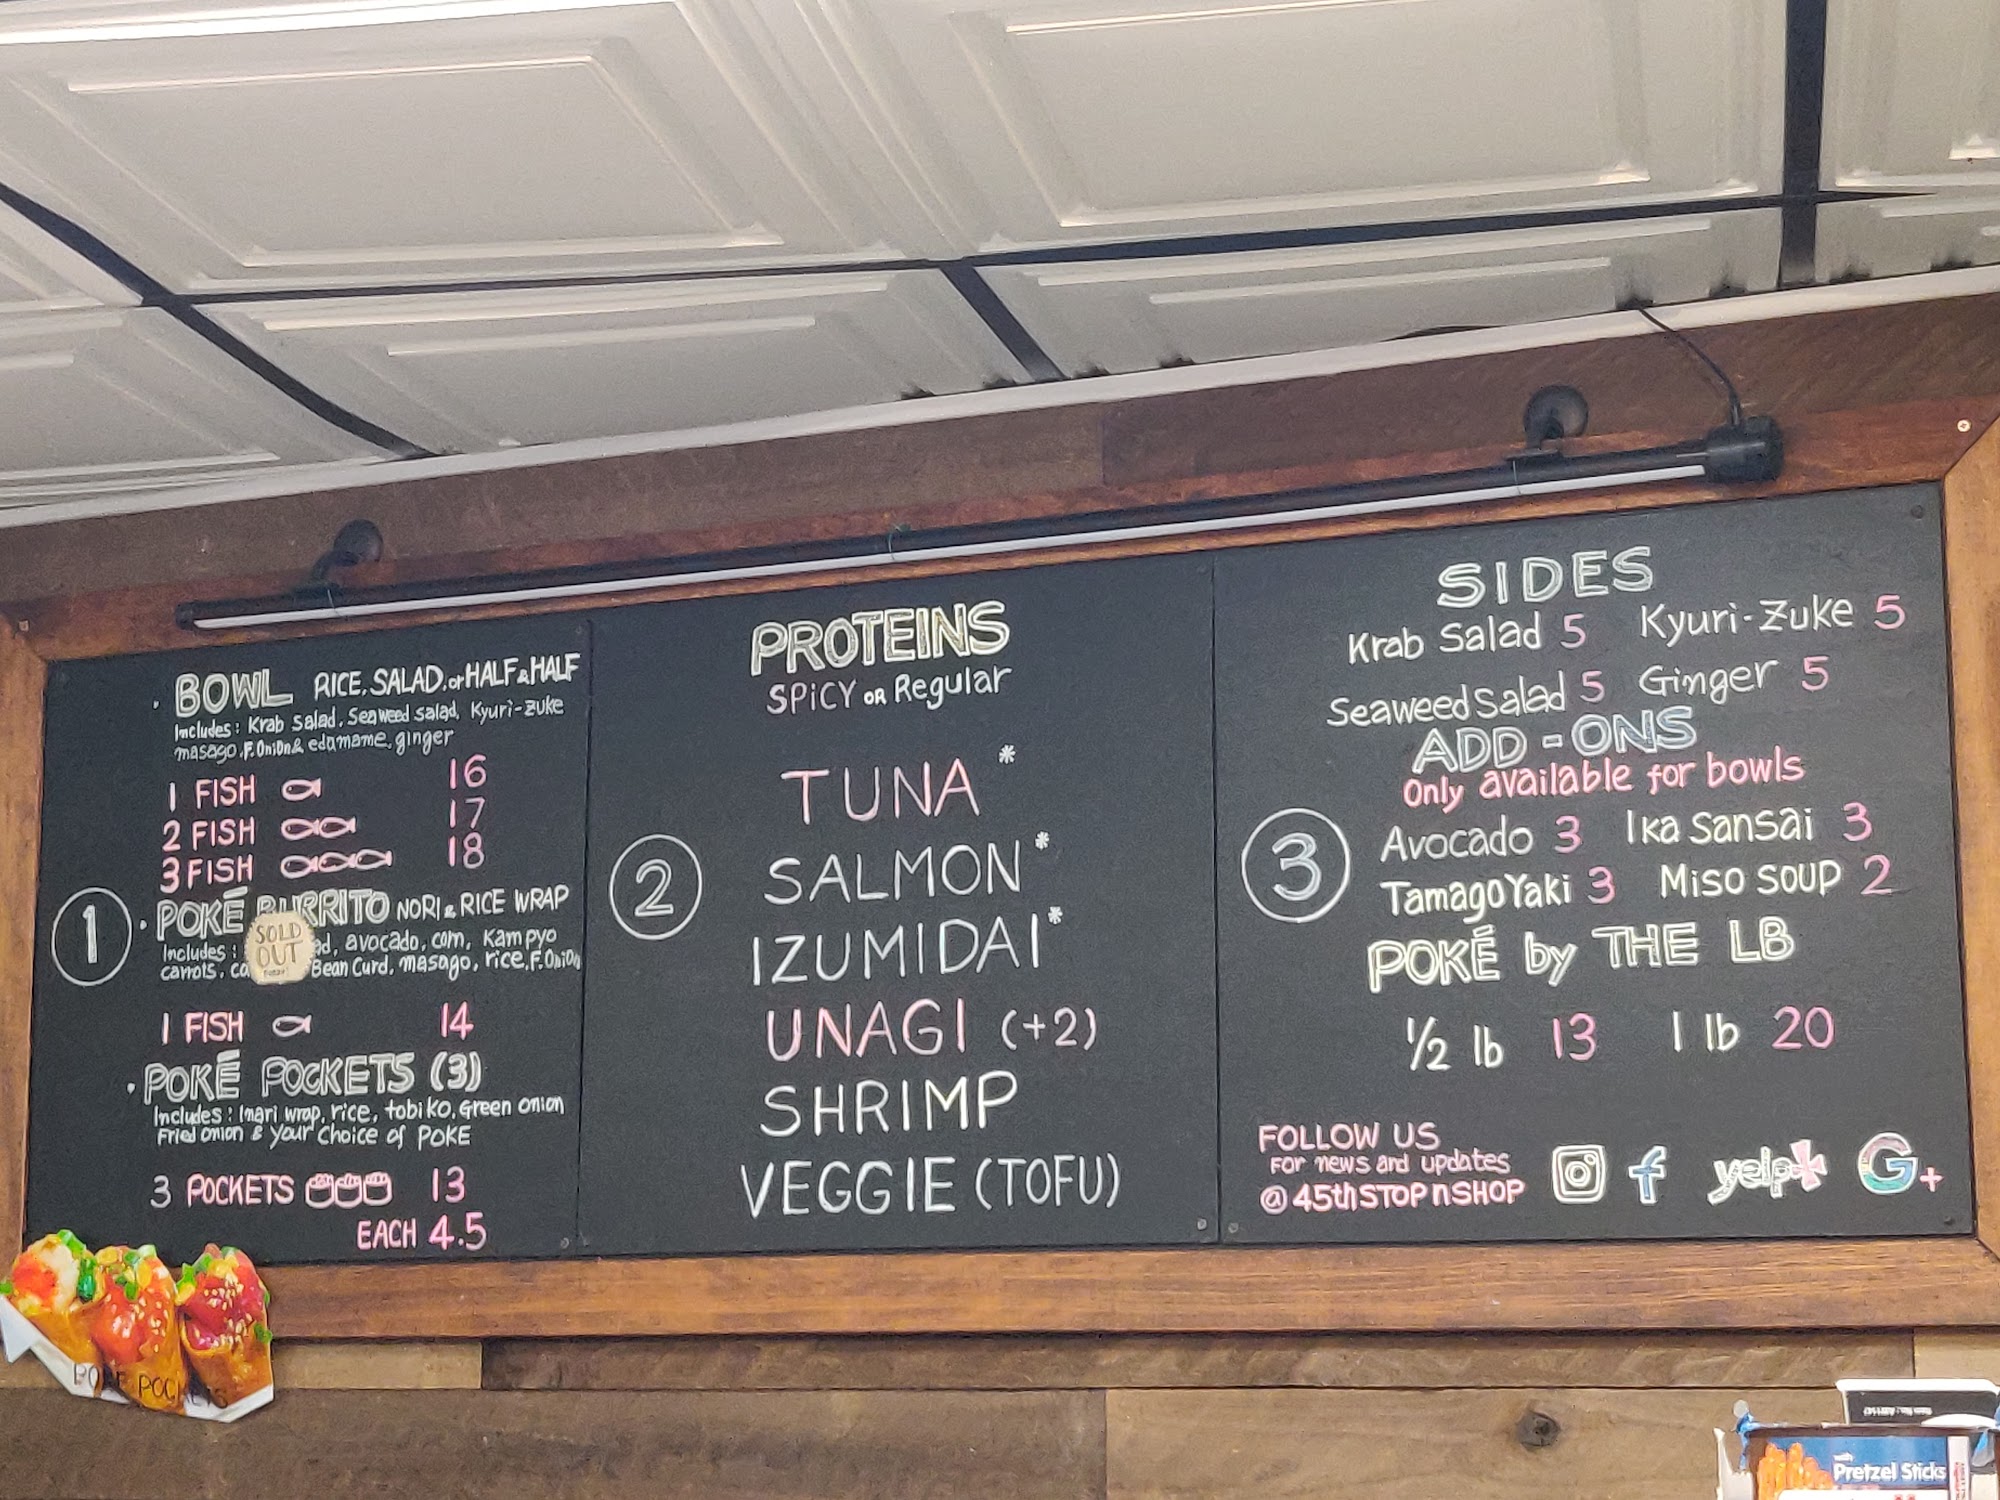 BOWL RICE, SALAD, or HALF & HALF
Includes: Krab Salad, Seaweed Salad, Kyuri-Zuke
masago, F.Onion & edamame, ginger
1 FISH 16
2 FISH 17
3 FISH 18
1
POKÉ BURRITO NORI & RICE WRAP
SOLD
OUT
Includes: avocado, corn, Kampyo
carrots, Bean Curd, masago, rice, F.Onion
1 FISH 14
POKÉ POCKETS (3)
Includes: Inari wrap, rice, tobiko, Green Onion
Fried Onion & Your Choice of POKE
3 POCKETS 13
EACH 4.5
POKE POCKETS
PROTEINS
SPiCY OR Regular
2
TUNA*
SALMON*
IZUMIDAI*
UNAGI (+2)
SHRIMP
VEGGIE (TOFU)
SIDES
Krab Salad 5 Kyuri-Zuke 5
Seaweed Salad 5 Ginger 5
ADD-ONS
Only available for bowls
3
Avocado 3 Ika Sansai 3
Tamago Yaki 3 Miso Soup 2
POKÉ by THE LB
1/2 lb 13 1 lb 20
FOLLOW US
For news and updates
@45thSTOPnSHOP
f yelp G+
with
Pretzel Sticks